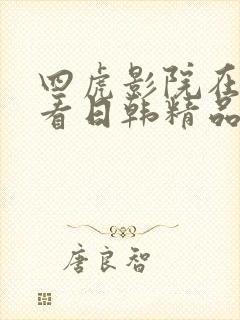 四虎影院在
看日韩精品
唐良智